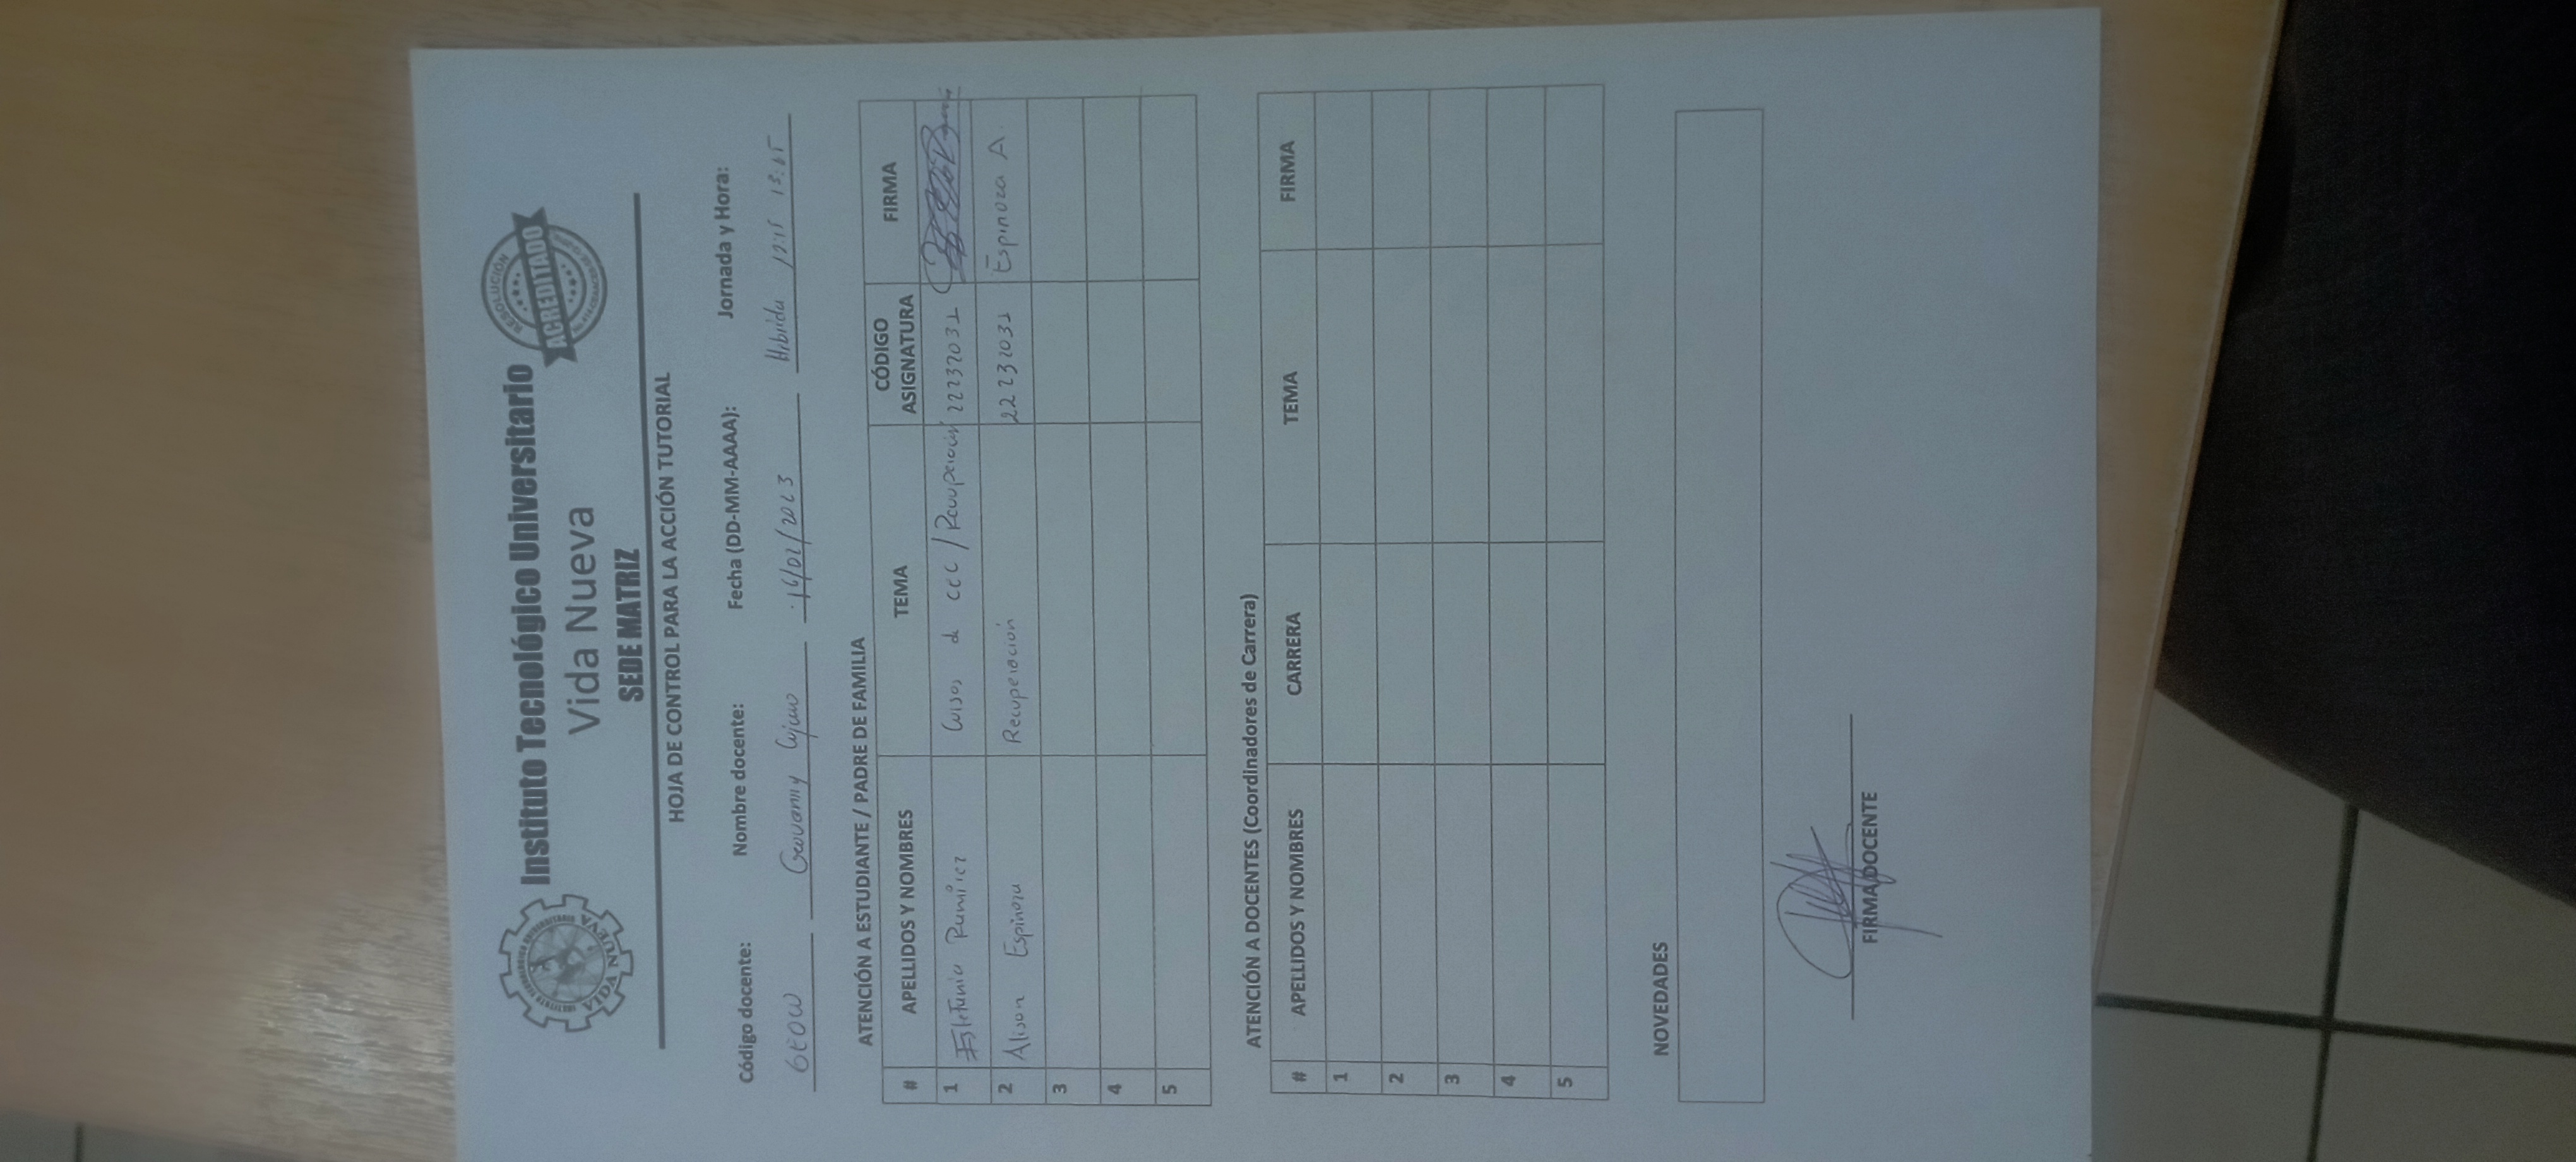 Instituto Tecnológico Universitario
Vida Nueva
SEDE MATRIZ
VIDA NUEVA
RESOLUCIÓN
ACREDITADO
HOJA DE CONTROL PARA LA ACCIÓN TUTORIAL
Código docente: Nombre docente: Fecha (DD-MM-AAAA): Jornada y Hora:
GEOW Geovanny 16/02/2023 Hibrida 12:15 13:15
ATENCIÓN A ESTUDIANTE / PADRE DE FAMILIA
# APELLIDOS Y NOMBRES TEMA CÓDIGO ASIGNATURA FIRMA
1 Estefania Ramirez Cursos de CEC / Recuperación 22232031
2 Alison Espinoza Recuperación 22232031 Espinoza A.
3
4
5
ATENCIÓN A DOCENTES (Coordinadores de Carrera)
# APELLIDOS Y NOMBRES CARRERA TEMA FIRMA
1
2
3
4
5
NOVEDADES
FIRMA DOCENTE